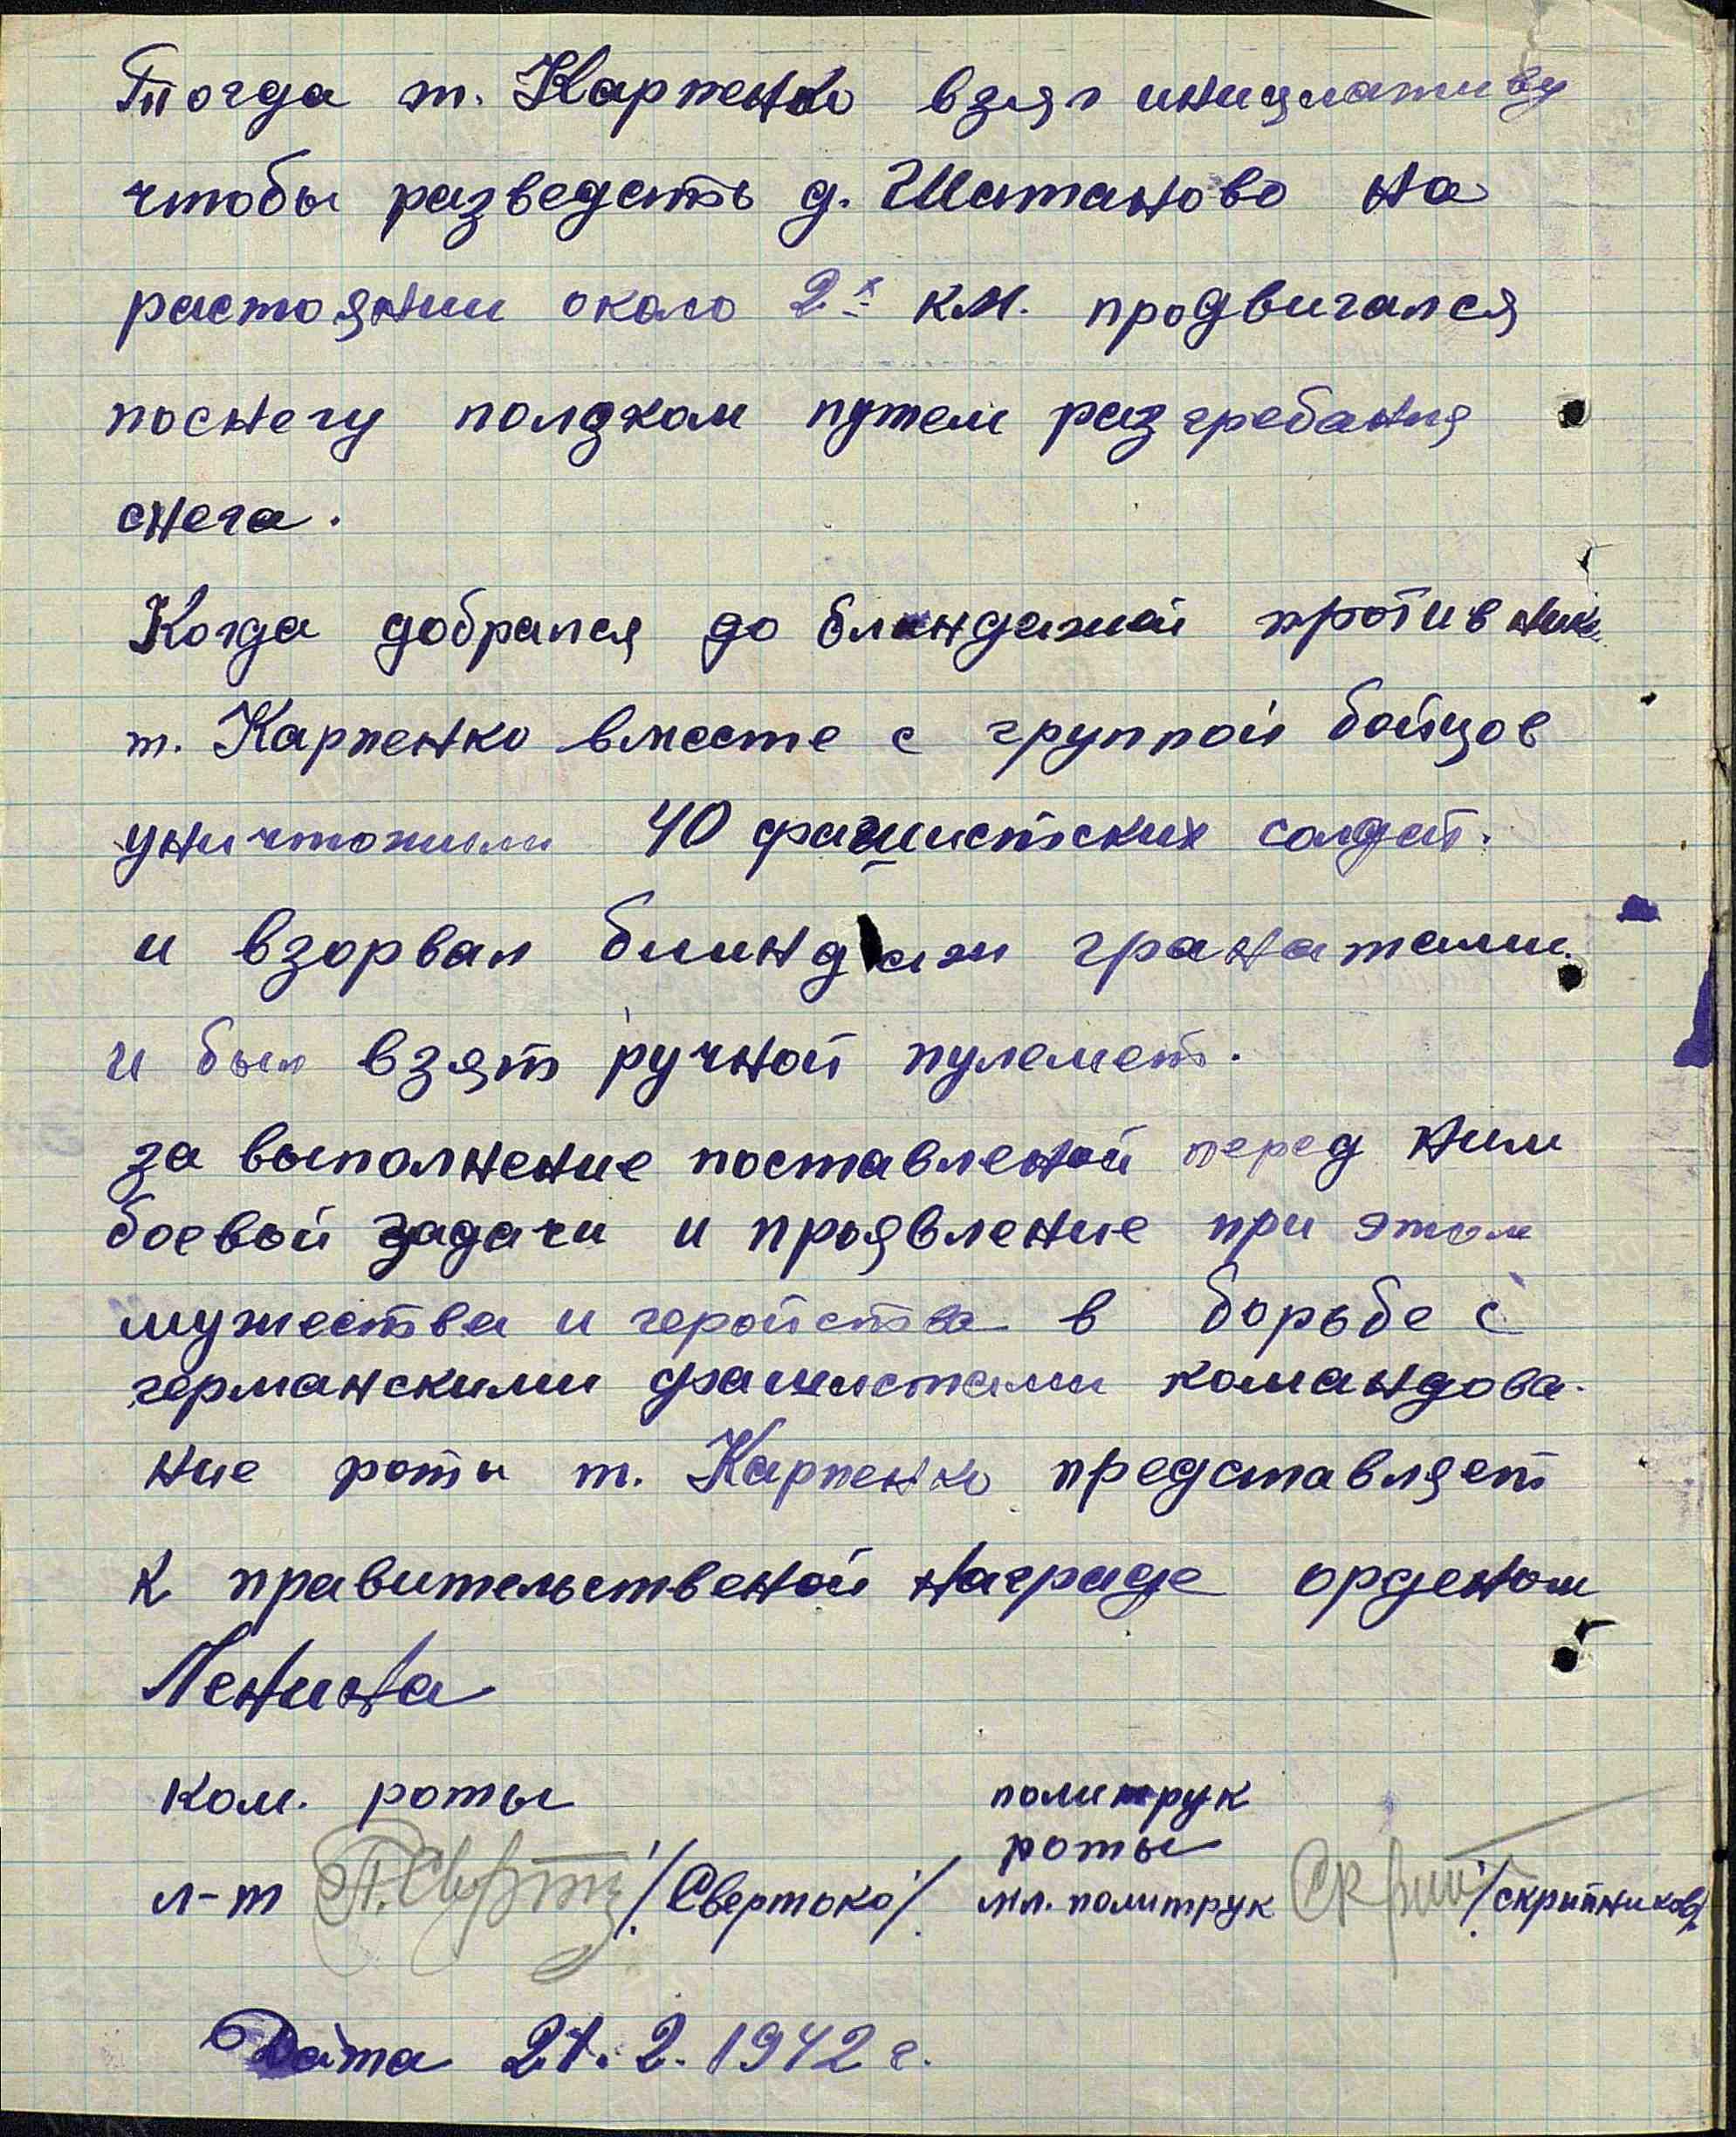 Тогда т. Карпенко взял инициативу
чтобы разведать д. Шатаново на
растоянии около 2х км. продвигался
поснегу ползком путем разгребания
снега.
Когда добрался до блиндажей противника
т. Карпенко вместе с группой бойцов
уничтожили 40 фашистских солдат.
и взорвал блиндаж гранатами.
и был взят ручной пулемет.
за выполнение поставленой перед ним
боевой задачи и проявление при этом
мужества и геройства в борьбе с
германскими фашистами командова-
ние роты т. Карпенко представляет
к правительственой награде орденом
Ленина
Ком. роты
политрук
роты
л-т /Свертоко/ мл. политрук /Скрипников/
Дата 21.2.1942 г.